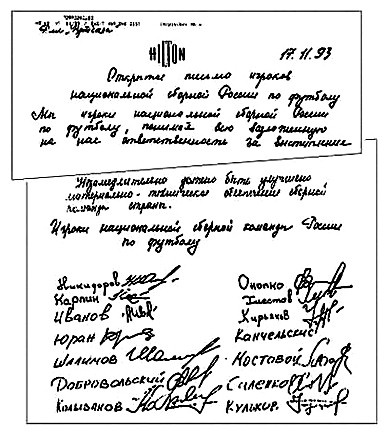 HILTON
17.11.93
Открытое письмо игроков
национальной сборной России по футболу
Мы игроки национальной сборной России
по футболу, понимая всю возложенную
на нас ответственность за выступление
Немедленно должно быть улучшено
материально-техническое обеспечение сборной
команды страны.
Игроки национальной сборной команды России
по футболу
Никифоров
Онопко
Карпин
Хлестов
Иванов
Кирьяков
Юран
Канчельскис
Шалимов
Мостовой
Добровольский
Саленко
Колыванов
Кульков